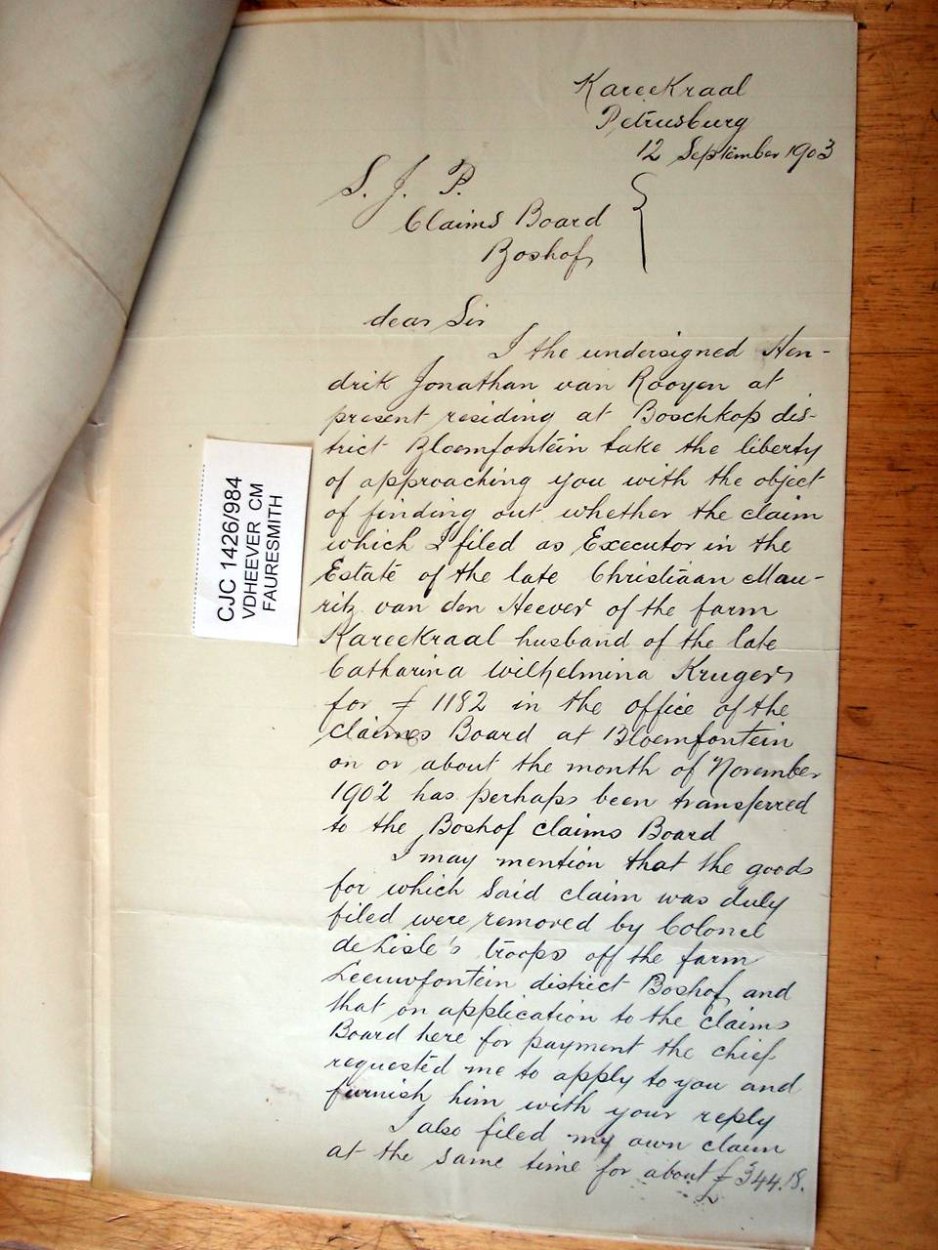 Kareekraal
Petrusburg
12 September 1903
S. J. P.
Claims Board
Boshof
dear Sir
I the undersigned Hen-
drik Jonathan van Rooyen at
present residing at Boschkop dis-
trict Bloemfontein take the liberty
of approaching you with the object
of finding out whether the claim
which I filed as Executor in the
Estate of the late Christiaan Mau-
ritz van den Heever of the farm
Kareekraal husband of the late
Catharina Wilhelmina Krugers
for £ 1182 in the office of the
claims Board at Bloemfontein
on or about the month of November
1902 has perhaps been transferred
to the Boshof claims Board
I may mention that the goods
for which said claim was duly
filed were removed by Colonel
de Lisle's troops off the farm
Leeuwfontein district Boshof and
that on application to the claims
Board here for payment the chief
requested me to apply to you and
furnish him with your reply
I also filed my own claim
at the same time for about £ 344.18.
CJC 1426/984
VDHEEVER CM
FAURESMITH